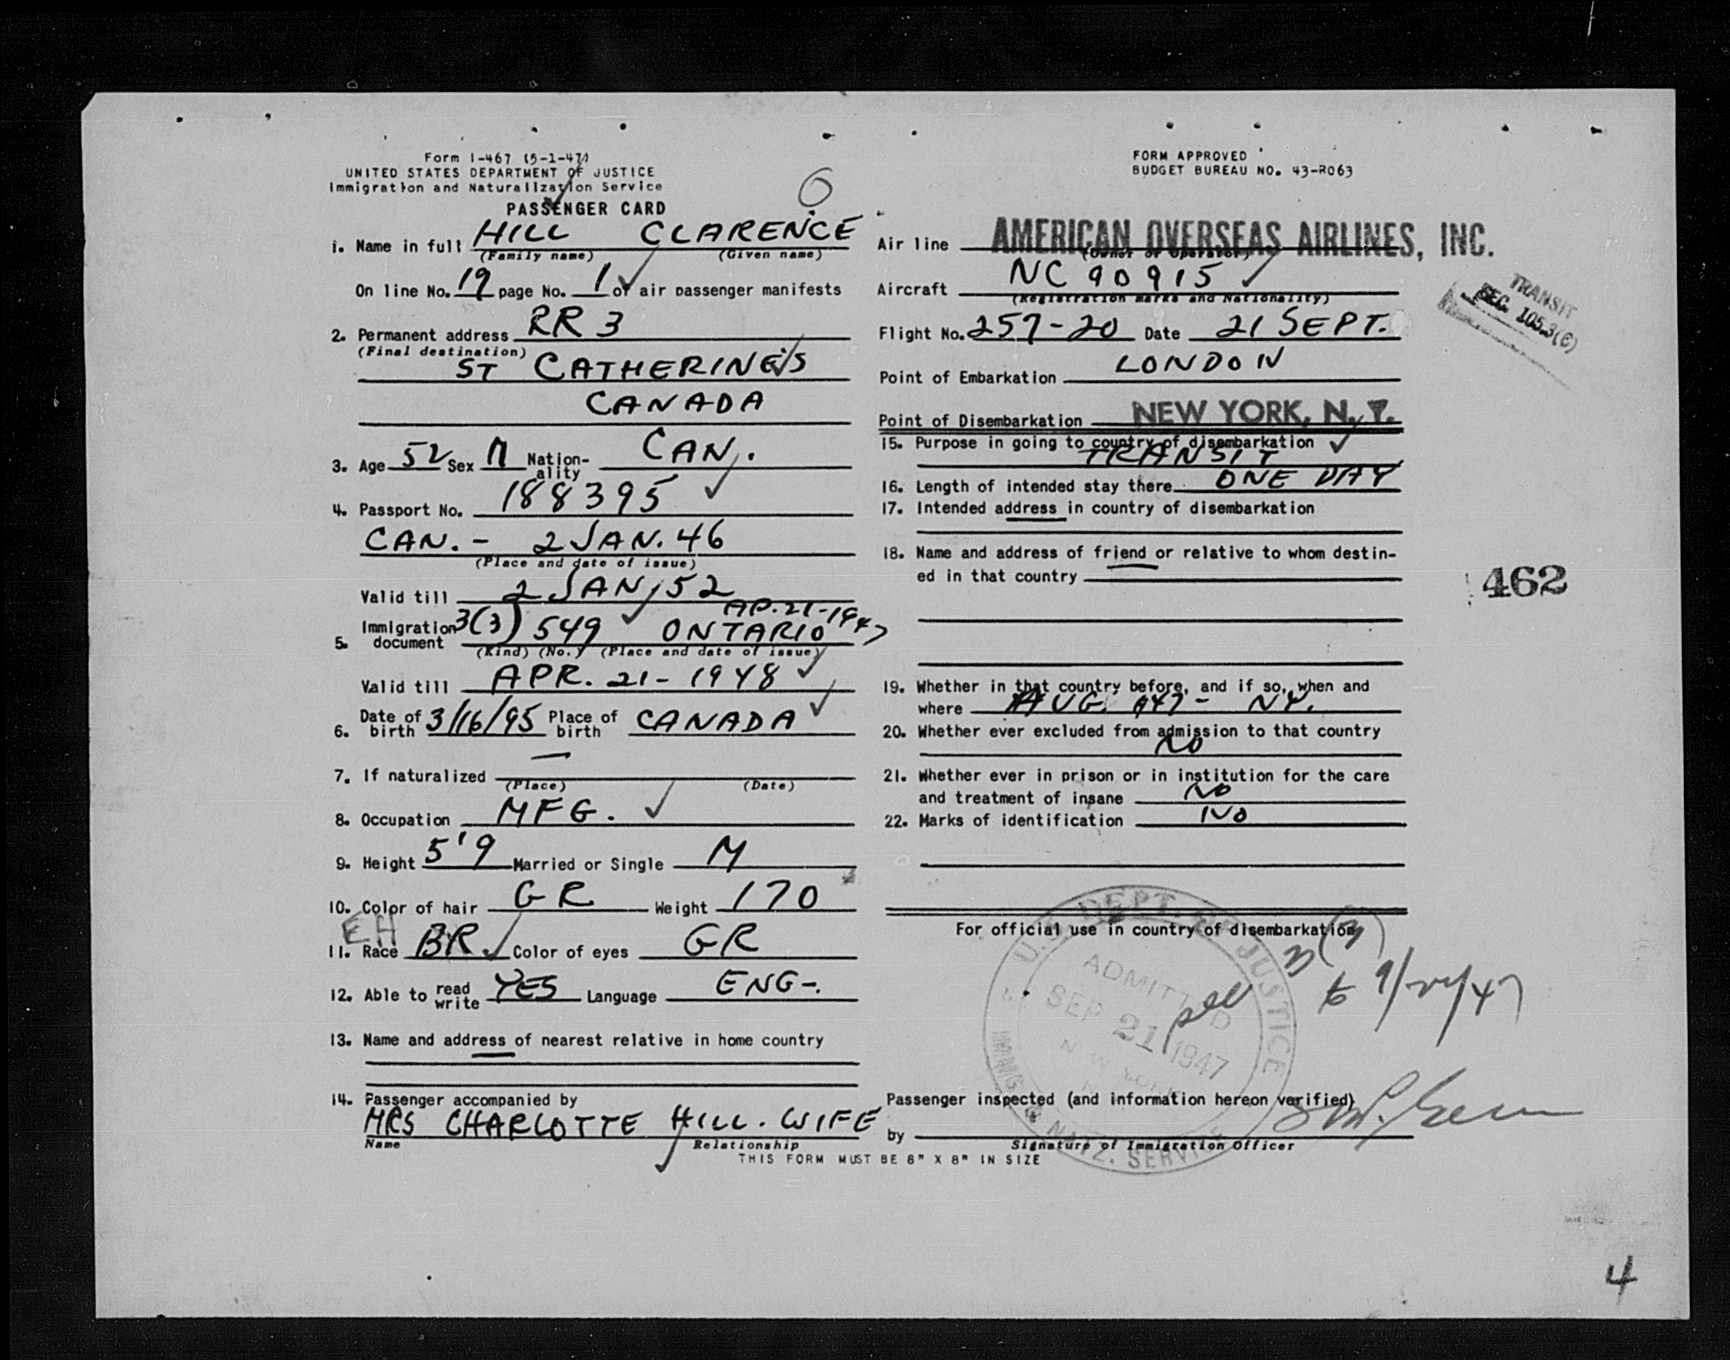 Form I-467 (5-1-47)
UNITED STATES DEPARTMENT OF JUSTICE
Immigration and Naturalization Service
PASSENGER CARD
FORM APPROVED
BUDGET BUREAU NO. 43-R063
1. Name in full HILL CLARENCE
(Family name) (Given name)
On line No. 19 page No. 1 of air passenger manifests
2. Permanent address RR 3
(Final destination)
ST CATHERINES
CANADA
3. Age 52 Sex M Nationality CAN.
4. Passport No. 188395
CAN. - 2 JAN. 46
(Place and date of issue)
Valid till 2 JAN 52
AP. 21-1947
5. Immigration document 3(3) 549 ONTARIO
(Kind) (No.) (Place and date of issue)
Valid till APR. 21-1948
6. Date of birth 3/16/95 Place of birth CANADA
7. If naturalized —
(Place) (Date)
8. Occupation MFG.
9. Height 5'9 Married or Single M
10. Color of hair GR Weight 170
EH
11. Race BR Color of eyes GR
12. Able to read write YES Language ENG-.
13. Name and address of nearest relative in home country
14. Passenger accompanied by
MRS CHARLOTTE HILL. WIFE
Name Relationship
THIS FORM MUST BE 8" X 8" IN SIZE
Air line AMERICAN OVERSEAS AIRLINES, INC.
(Owner or Operator)
Aircraft NC 90915
(Registration marks and Nationality)
Flight No. 257-20 Date 21 SEPT.
Point of Embarkation LONDON
Point of Disembarkation NEW YORK, N. Y.
15. Purpose in going to country of disembarkation
TRANSIT
16. Length of intended stay there ONE DAY
17. Intended address in country of disembarkation
18. Name and address of friend or relative to whom destin-
ed in that country
19. Whether in that country before, and if so, when and
where AUG. 947 - NY.
20. Whether ever excluded from admission to that country
NO
21. Whether ever in prison or in institution for the care
and treatment of insane NO
22. Marks of identification NO
For official use in country of disembarkation
3(3)
U.S. DEPT. OF JUSTICE
ADMITTED
SEP 21 1947
NEW YORK
IMMIG. & NATZ. SERVICE
Passenger inspected (and information hereon verified)
by
Signature of Immigration Officer
TRANSIT
SEC. 105.3(C)
462
4